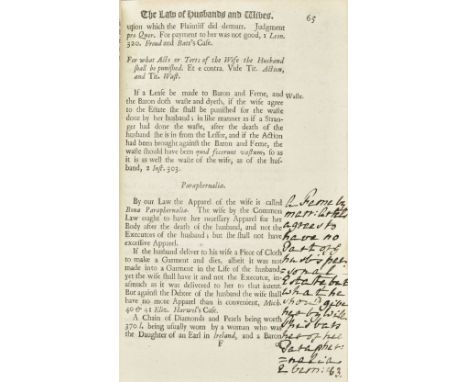 The Law of Husbands and Wives.
65
upon which the Plaintiff did demurr. Judgment
pro Quer. For payment to her was not good, 2 Leon.
320. Froud and Bats's Case.
For what Acts or Torts of the Wife the Husband
shall be punished. Et e contra. Vide Tit. Action,
and Tit. Wast.
If a Lease be made to Baron and Feme, and
Waste.
the Baron doth waste and dyeth, if the wife agree
to the Estate she shall be punished for the waste
done by her husband; in like manner as if a Stran-
ger had done the waste, after the death of the
husband she is in from the Lessor, and if the Action
had been brought against the Baron and Feme, the
waste should have been quod fecerunt vastum, so as
it is as well the waste of the wife, as of the hus-
band, 2 Inst. 303.
Paraphernalia.
By our Law the Apparel of the wife is called
Bona Paraphernalia. The wife by the Common
Law ought to have her necessary Apparel for her
Body after the death of the husband, and not the
Executors of the husband; but she shall not have
excessive Apparel.
If the husband deliver to his wife a Piece of Cloth
to make a Garment and dies, albeit it was not
made into a Garment in the Life of the husband
yet the wife shall have it and not the Executor, in-
asmuch as it was delivered to her to that intent
But against the Debtee of the husband the wife shall
have no more Apparel than is convenient, Mich.
40 & 41 Eliz. Harwel's Case.
A Chain of Diamonds and Pearls being worth
370 l. being usually worn by a woman who was
the Daughter of an Earl in Ireland, and a Baron
F
a Feme by
agrees to
have no
Part of
hus:s per
=sonal
Estate but
what he
shou'd give
her by Will
this bars
her of her
Parapher
=nalia
2 Vern: 83.